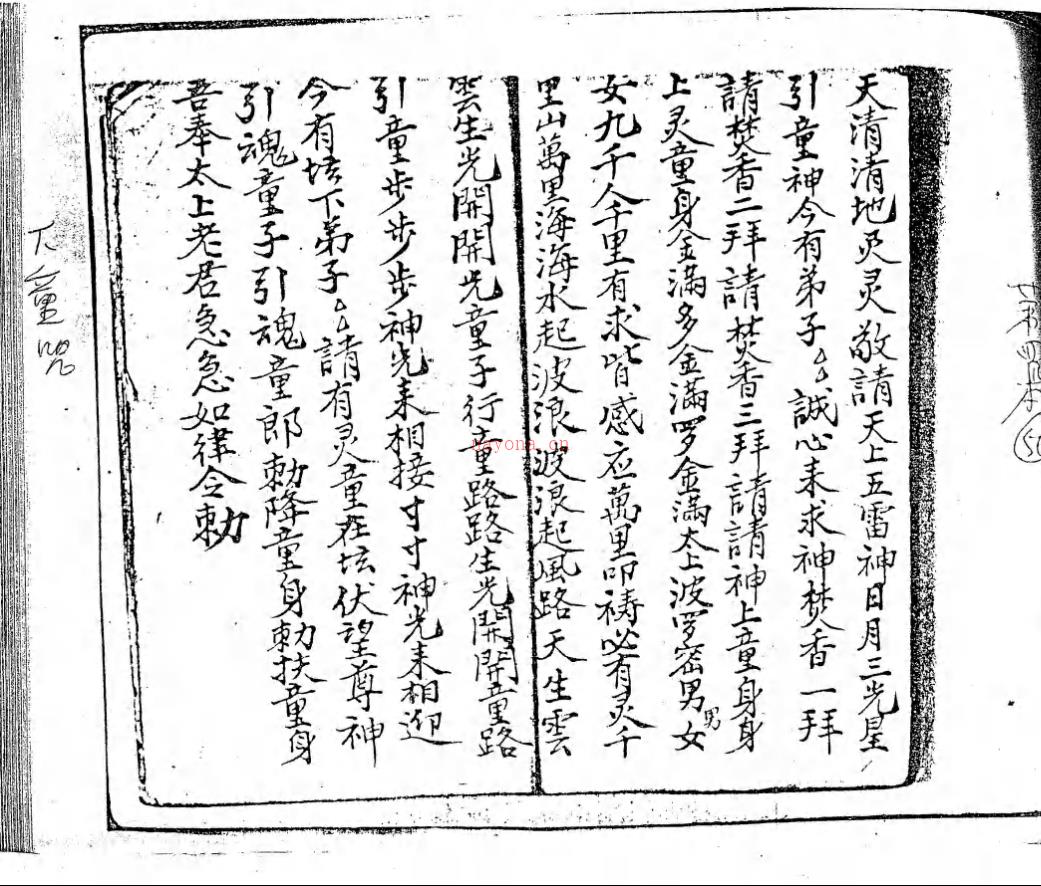 天清清地灵灵敬請天上五雷神日月三光星
引童神今有弟子厶厶誠心来求神焚香一拜
請焚香二拜請焚香三拜請請神上童身身
上灵童身金滿多金滿罗金滿太上波罗密男男女
女九千人千里有求皆感应萬里叩祷必有灵千
里山萬里海海水起波浪波浪起風路天生雲
雲生光開開光童子行童路路生光開開童路
引童步步步步神光来相接寸寸神光来相迎
今有坛下弟子厶厶請有灵童在坛伏望尊神
引魂童子引魂童郎勅降童身勅扶童身
吾奉太上老君急急如律令勅
下童咒
50
nayona.cn